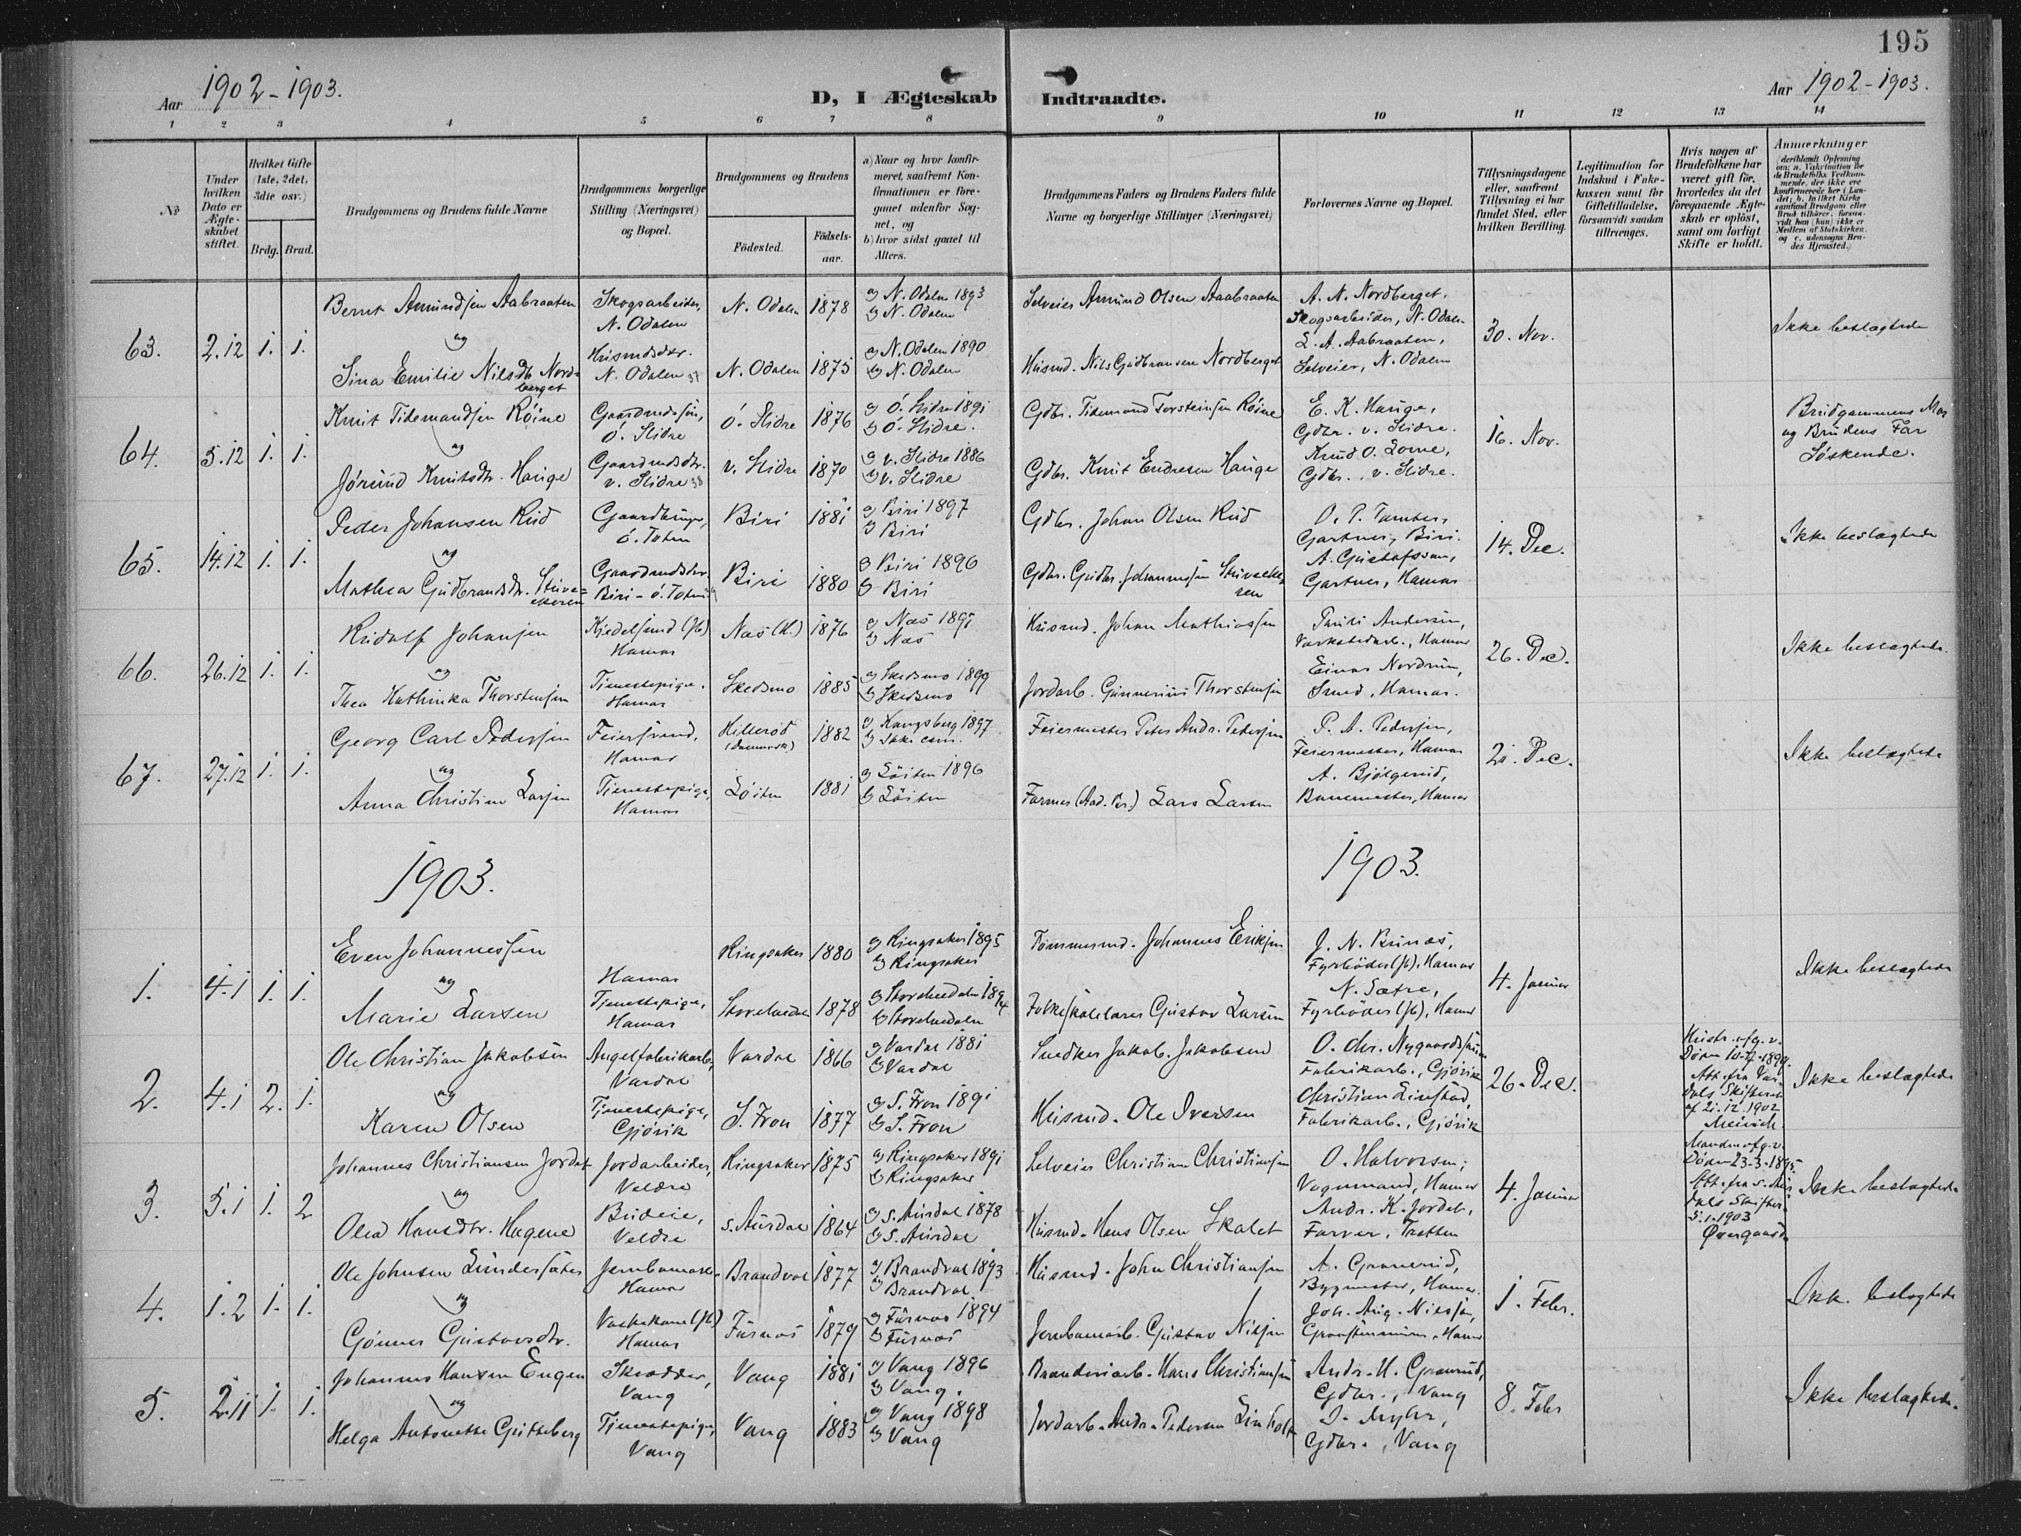 195
Aar 1902-1903.
D, I Ægteskab Indtraadte.
Aar 1902-1903.
1 2 3 4 5 6 7 8 9 10 11 12 13 14
No
Under hvilken Dato er Ægteskabet stiftet.
Hvilket Gifte (1ste, 2det, 3die osv.)
Brdg. Brud.
Brudgommens og Brudens fulde Navne
Brudgommens borgerlige Stilling (Næringsvei) og Bopæl.
Brudgommens og Brudens
Fødested. Fødsels-aar.
a) Naar og hvor konfirmeret, saafremt Konfirmationen er foregaaet udenfor Sognet, og
b) hvor sidst gaaet til Alters.
Brudgommens Faders og Brudens Faders fulde Navne og borgerlige Stillinger (Næringsvei)
Forlovernes Navne og Bopæl.
Tillysningsdagene eller, saafremt Tillysning ei har fundet Sted, efter hvilken Bevilling.
Legitimation for Indskud i Enkekassen samt for Giftetilladelse, forsaavidt saadan tiltrænges.
Hvis nogen af Brudefolkene har været gift før, hvorledes da det foregaaende Ægteskab er opløst, samt om lovligt Skifte er holdt.
Anmærkninger
63. 2.12 1. 1.
Bernt Amundsen Aabraaten
Skogsarbeider, N. Odalen
N. Odalen 1878
a) N. Odalen 1893
b) N. Odalen
Selveier Amund Olsen Aaabraaten
A. N. Nordberget,
Skogsarbeider, N. Odalen
L. A. Aabraaten,
Selveier, N. Odalen
30. Nov.
Ikke beslægtede
og
Sina Emilie Nilsdtr. Nordberget
Husmdsdtr. N. Odalen
N. Odalen 1875
a) N. Odalen 1890
b) N. Odalen
Husmd. Nils Gudbransen Nordberget
64. 5.12 1. 1.
Knut Tidemandsen Røine
Gaardmdssøn, Ö. Slidre
Ö. Slidre 1876
a) Ö. Slidre 1891
b) Ö. Slidre.
Gdbr. Tidemand Torsteinsen Røine
E. K. Hauge,
Gdbr. v. Slidre.
Knud O. Lome,
Gdbr. v. Slidre.
16. Nov.
Brudgommens Mor
og Brudens Far
Søskende.
og
Jørund Knutsdtr. Hauge
Gaardmdsdtr. v. Slidre
v. Slidre 1870
a) v. Slidre 1886
b) v. Slidre
Gdbr. Knut Endresen Hauge
65. 14.12 1. 1.
Peder Johansen Rud
Gaardbruger, ö. Toten
Biri 1881
a) Biri 1897
b) Biri
Gdbr. Johan Olsen Rud
Gartner, Biri.
A. Gustafsson,
Gartner, Hamar
14. Dec.
Ikke beslægtede
og
Mathea Gudbrandsdtr.
Gaardmdsdtr. Biri - ö. Toten
Biri 1880
a) Biri 1896
b) Biri
Gdbr. Gudbr. Johannessen
66. 26.12 1. 1.
Rudolf Johansen
Kjedelsmed (Jb) Hamar
Næs (H.) 1876
a) Næs 1891
b) Næs
Husmd. Johan Mathiassen
Værkstedarb., Hamar
Einar Nordrum,
Smed, Hamar.
26. Dec.
Ikke beslægtede.
og
Thea Kathinka Thorstensen
Tjenestepige, Hamar
Skedsmo 1885
a) Skedsmo 1899
b) Skedsmo
Jordarb. Gunnerius Thorstensen
67. 27.12 1. 1.
Georg Carl Pedersen
Feiersvend, Hamar
Hillerød (Danmark) 1882
a) Kongsberg 1897
b) Ikke com.
Feiermester Peter Andr. Pedersen
P. A. Pedersen,
Feiermester, Hamar
A. Bjølgerud,
Banemester, Hamar
21. Dec.
Ikke beslægtede
og
Anna Christine Larsen
Tjenestepige, Hamar
Løiten 1881
a) Løiten 1896
b) Løiten
Farmer Lars Larsen
1903. 1903.
1. 4.1 1. 1.
Even Johannessen
Hamar
Ringsaker 1880
a) Ringsaker 1895
b) Ringsaker
Tømmermd. Johannes Eriksen
J. N. Brunæs,
Fyrbøder (Jb), Hamar
N. Sætre,
Fyrbøder (Jb), Hamar
4. Januar
Ikke beslægtede
og
Marie Larsen
Tjenestepige, Hamar
Storelvedalen 1878
a) Storelvedalen 1894
b) Storelvedalen
Folkeskolelærer Gustav Larsen
2. 4.1 2. 1.
Ole Christian Jakobsen
Angelfabrikarb., Vardal
Vardal 1866
a) Vardal 1881
b) Vardal
Snedker Jakob Jakobsen
O. Chr. Nygaardshaug
Fabrikarb., Gjøvik
Christian Linstad,
Fabrikarb., Gjøvik
26. Dec.
Hustr. afg. v.
Døden 10-7-1899.
Att. fra Vardals Skifteret
af 21.12.1902
Ikke beslægtede
og
Karen Olsen
Tjenestepige, Gjøvik
S. Fron 1877
a) S. Fron 1891
b) S. Fron
Husmd. Ole Iversen
3. 5.1 1. 2
Johannes Christiansen Jordet
Jordarbeider, Veldre
Ringsaker 1875
a) Ringsaker 1891
b) Ringsaker
Selveier Christian Christiansen
O. Halvorsen,
Vognmand, Hamar
Andr. K. Jordet,
Farver, Tretten
4. Januar
Manden afg. v.
Døden 23-3-1895.
Att. fra S. Aurdals Skifteret
5.1.1903
Ikke beslægtede
og
Olea Hansdtr. Hagene
Budeie, Veldre
S. Aurdal 1864
a) S. Aurdal 1878
b) S. Aurdal
Husmd. Hans Olsen Skalet
4. 1.2 1. 1.
Ole Johnsen Lundersæter
Hamar
Brandval 1877
a) Brandval 1893
b) Brandval
Husmd. John Christiansen
A. Granerud,
Bygmester, Hamar
Joh. Aug. Nilssen,
Hamar
1. Febr.
Ikke beslægtede
og
Gunner Gustavsdtr.
Hamar
Furnæs 1879
a) Furnæs 1894
b) Furnæs
Jernbanearb. Gustav Nilsen
5. 2.11 1. 1.
Johannes Hansen Engen
Skrædder, Vang
Vang 1881
a) Vang 1896
b) Vang.
Brænderiarb. Hans Christiansen
Andr. H. Granrud,
Gdbr., Vang
Myhr,
Gdbr., Vang
8. Febr
Ikke beslægtede.
og
Helga Antonette Gutteberg
Tjenestepige, Vang
Vang 1883
a) Vang 1898
b) Vang
Jordarb. Andr. Pedersen Linholt